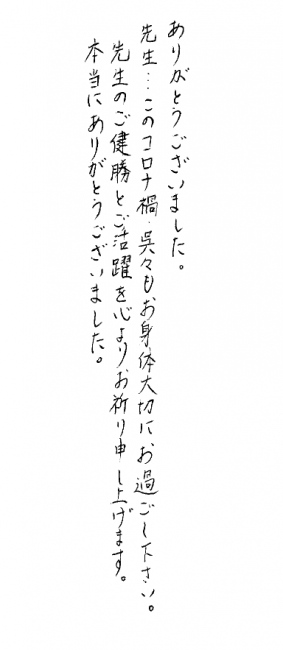 ありがとうございました。
先生…このコロナ禍、呉々もお身体大切にお過ごし下さい。
先生のご健勝とご活躍を心よりお祈り申し上げます。
本当にありがとうございました。